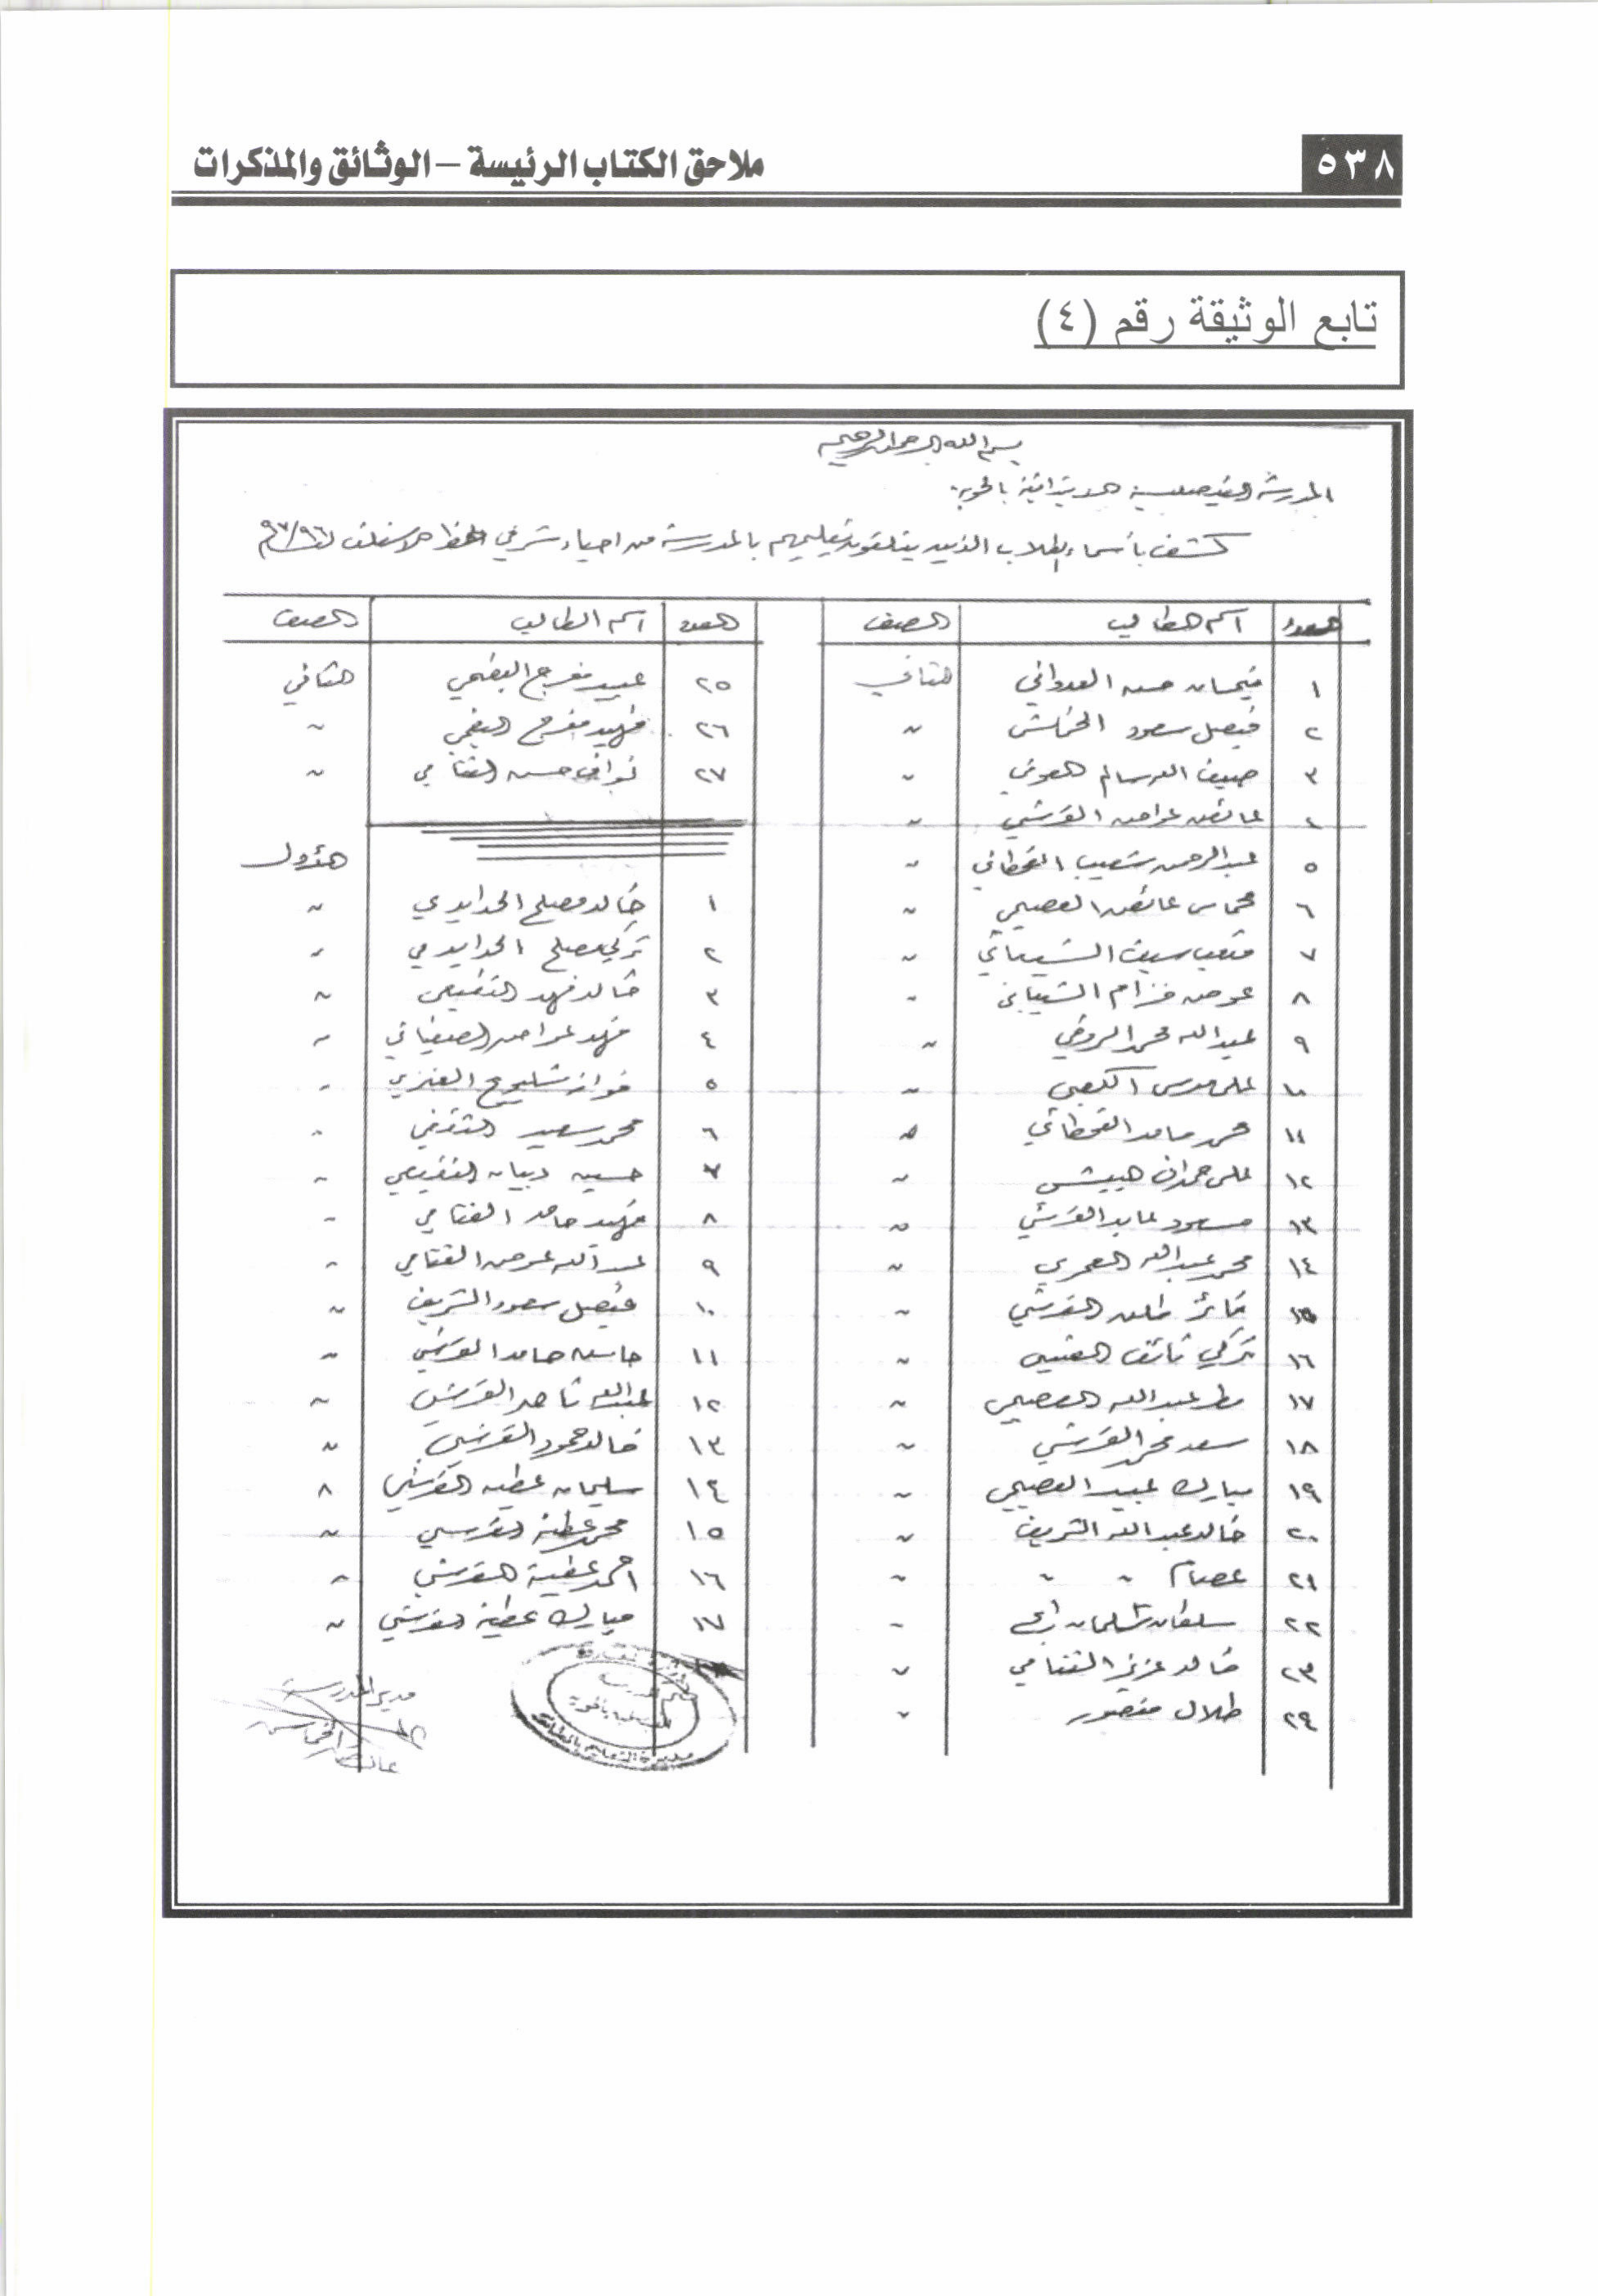 ٥٣٨
ملاحق الكتاب الرئيسة – الوثائق والمذكرات
تابع الوثيقة رقم (٤)
بسم الله الرحمن الرحيم
المدرسة الفيصلية الابتدائية بالحوية
كشف بأسماء الطلاب الذين يتلقون تعليمهم بالمدرسة من احياء شرقي الخط الاسفلت ٩٧/٩٦
العدد اسم الطالب الصف
١ فيحان حسن العدواني الثاني
٢ فيصل سعود الخماش "
٣ ضيف الله سالم العوفي "
٤ عائض عواض القرشي "
٥ عبدالرحمن شعيب القحطاني "
٦ محماس عائض العصيمي "
٧ متعب سيف الشيباني "
٨ عوض فزام الشيباني "
٩ عبدالله محمد الروقي "
١٠ على موسى الكعبي "
١١ محمد حامد القحطاني "
١٢ على حمدان "
١٣ مسعود عابد القرشي "
١٤ محمد عبدالله العمري "
١٥ فائز القرشي "
١٦ تركي نائف العتيبي "
١٧ مطر عبدالله العصيمي "
١٨ سعد محمد القرشي "
١٩ مبارك عبيد العصيمي "
٢٠ خالد عبدالله الشريف "
٢١ عصام " " "
٢٢ سلطان سليمان "
٢٣ خالد عزيز الغنامي "
٢٤ طلال منصور "
العدد اسم الطالب الصف
٢٥ عبيد مفرج البقمي الثاني
٢٦ فهيد مفرج البقمي "
٢٧ نواف حسن الغنامي "
الأول
١ خالد مصلح الحدايدي "
٢ تركي مصلح الحدايدي "
٣ خالد فهد النفيعي "
٤ فهد عواض "
٥ فواز شليويح العنزي "
٦ محمد سعيد الثقفي "
٧ حسين دبيان النفيعي "
٨ فهيد حامد الغنامي "
٩ عبدالله عوض الغنامي "
١٠ فيصل سعود الشريف "
١١ حامد القرشي "
١٢ عبدالله ناصر القرشي "
١٣ خالد حمود القرشي "
١٤ سليمان عطيه القرشي "
١٥ محمد عطية القرشي "
١٦ احمد عطية القرشي "
١٧ مبارك عطية القرشي "
مدير المدرسة